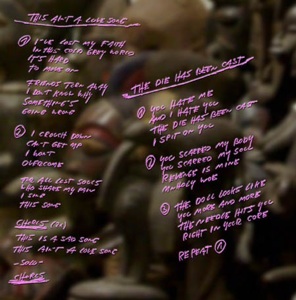 THIS AIN'T A LOVE SONG
① I'VE LOST MY FAITH
IN THIS COLD GREY WORLD
IT'S HARD
TO MOVE ON
FRIENDS TURN AWAY
I DON'T KNOW WHY
SOMETHING'S
GOING WRONG
② I CROUCH DOWN
CAN'T GET UP
I WON'T
OVERCOME
TO ALL LOST SOULS
WHO SHARE MY PAIN
I SING
THIS SONG
CHORUS (2x)
THIS IS A SAD SONG
THIS AIN'T A LOVE SONG
-SOLO-
CHORUS
THE DIE HAS BEEN CAST
① YOU HATE ME
AND I HATE YOU
THE DIE HAS BEEN CAST
I SPIT ON YOU
② YOU SCARRED MY BODY
YOU SCARRED MY SOUL
REVENGE IS MINE
UNHOLY WOE
③ THE DOLL LOOKS LIKE
YOU MORE AND MORE
THE NEEDLE HITS YOU
RIGHT IN YOUR CORE
REPEAT ①